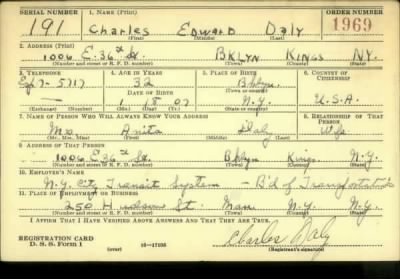 SERIAL NUMBER 1. NAME (Print) ORDER NUMBER
191 Charles Edward Daly 1969
(First) (Middle) (Last)
2. ADDRESS (Print)
1006 E. 36th St. BKLYN KINGS N.Y.
(Number and street or R. F. D. number) (Town) (County) (State)
3. TELEPHONE 4. AGE IN YEARS 5. PLACE OF BIRTH 6. COUNTRY OF CITIZENSHIP
7-5717 32 Bklyn
DATE OF BIRTH (Town or county)
— 1 8 07 N.Y. U.S.A.
(Exchange) (Number) (Mo.) (Day) (Yr.) (State or country)
7. NAME OF PERSON WHO WILL ALWAYS KNOW YOUR ADDRESS 8. RELATIONSHIP OF THAT PERSON
Mrs Anita Daly Wife
(Mr., Mrs., Miss) (First) (Middle) (Last)
9. ADDRESS OF THAT PERSON
1006 E. 36th St. Bklyn Kings N.Y.
(Number and street or R. F. D. number) (Town) (County) (State)
10. EMPLOYER'S NAME
N.Y. City Transit System – B'd of Transportation
11. PLACE OF EMPLOYMENT OR BUSINESS
250 Hudson St. Man N.Y. N.Y.
(Number and street or R. F. D. number) (Town) (County) (State)
I AFFIRM THAT I HAVE VERIFIED ABOVE ANSWERS AND THAT THEY ARE TRUE.
REGISTRATION CARD
D. S. S. Form 1 (over) 16—17105 Charles Daly
(Registrant's signature)